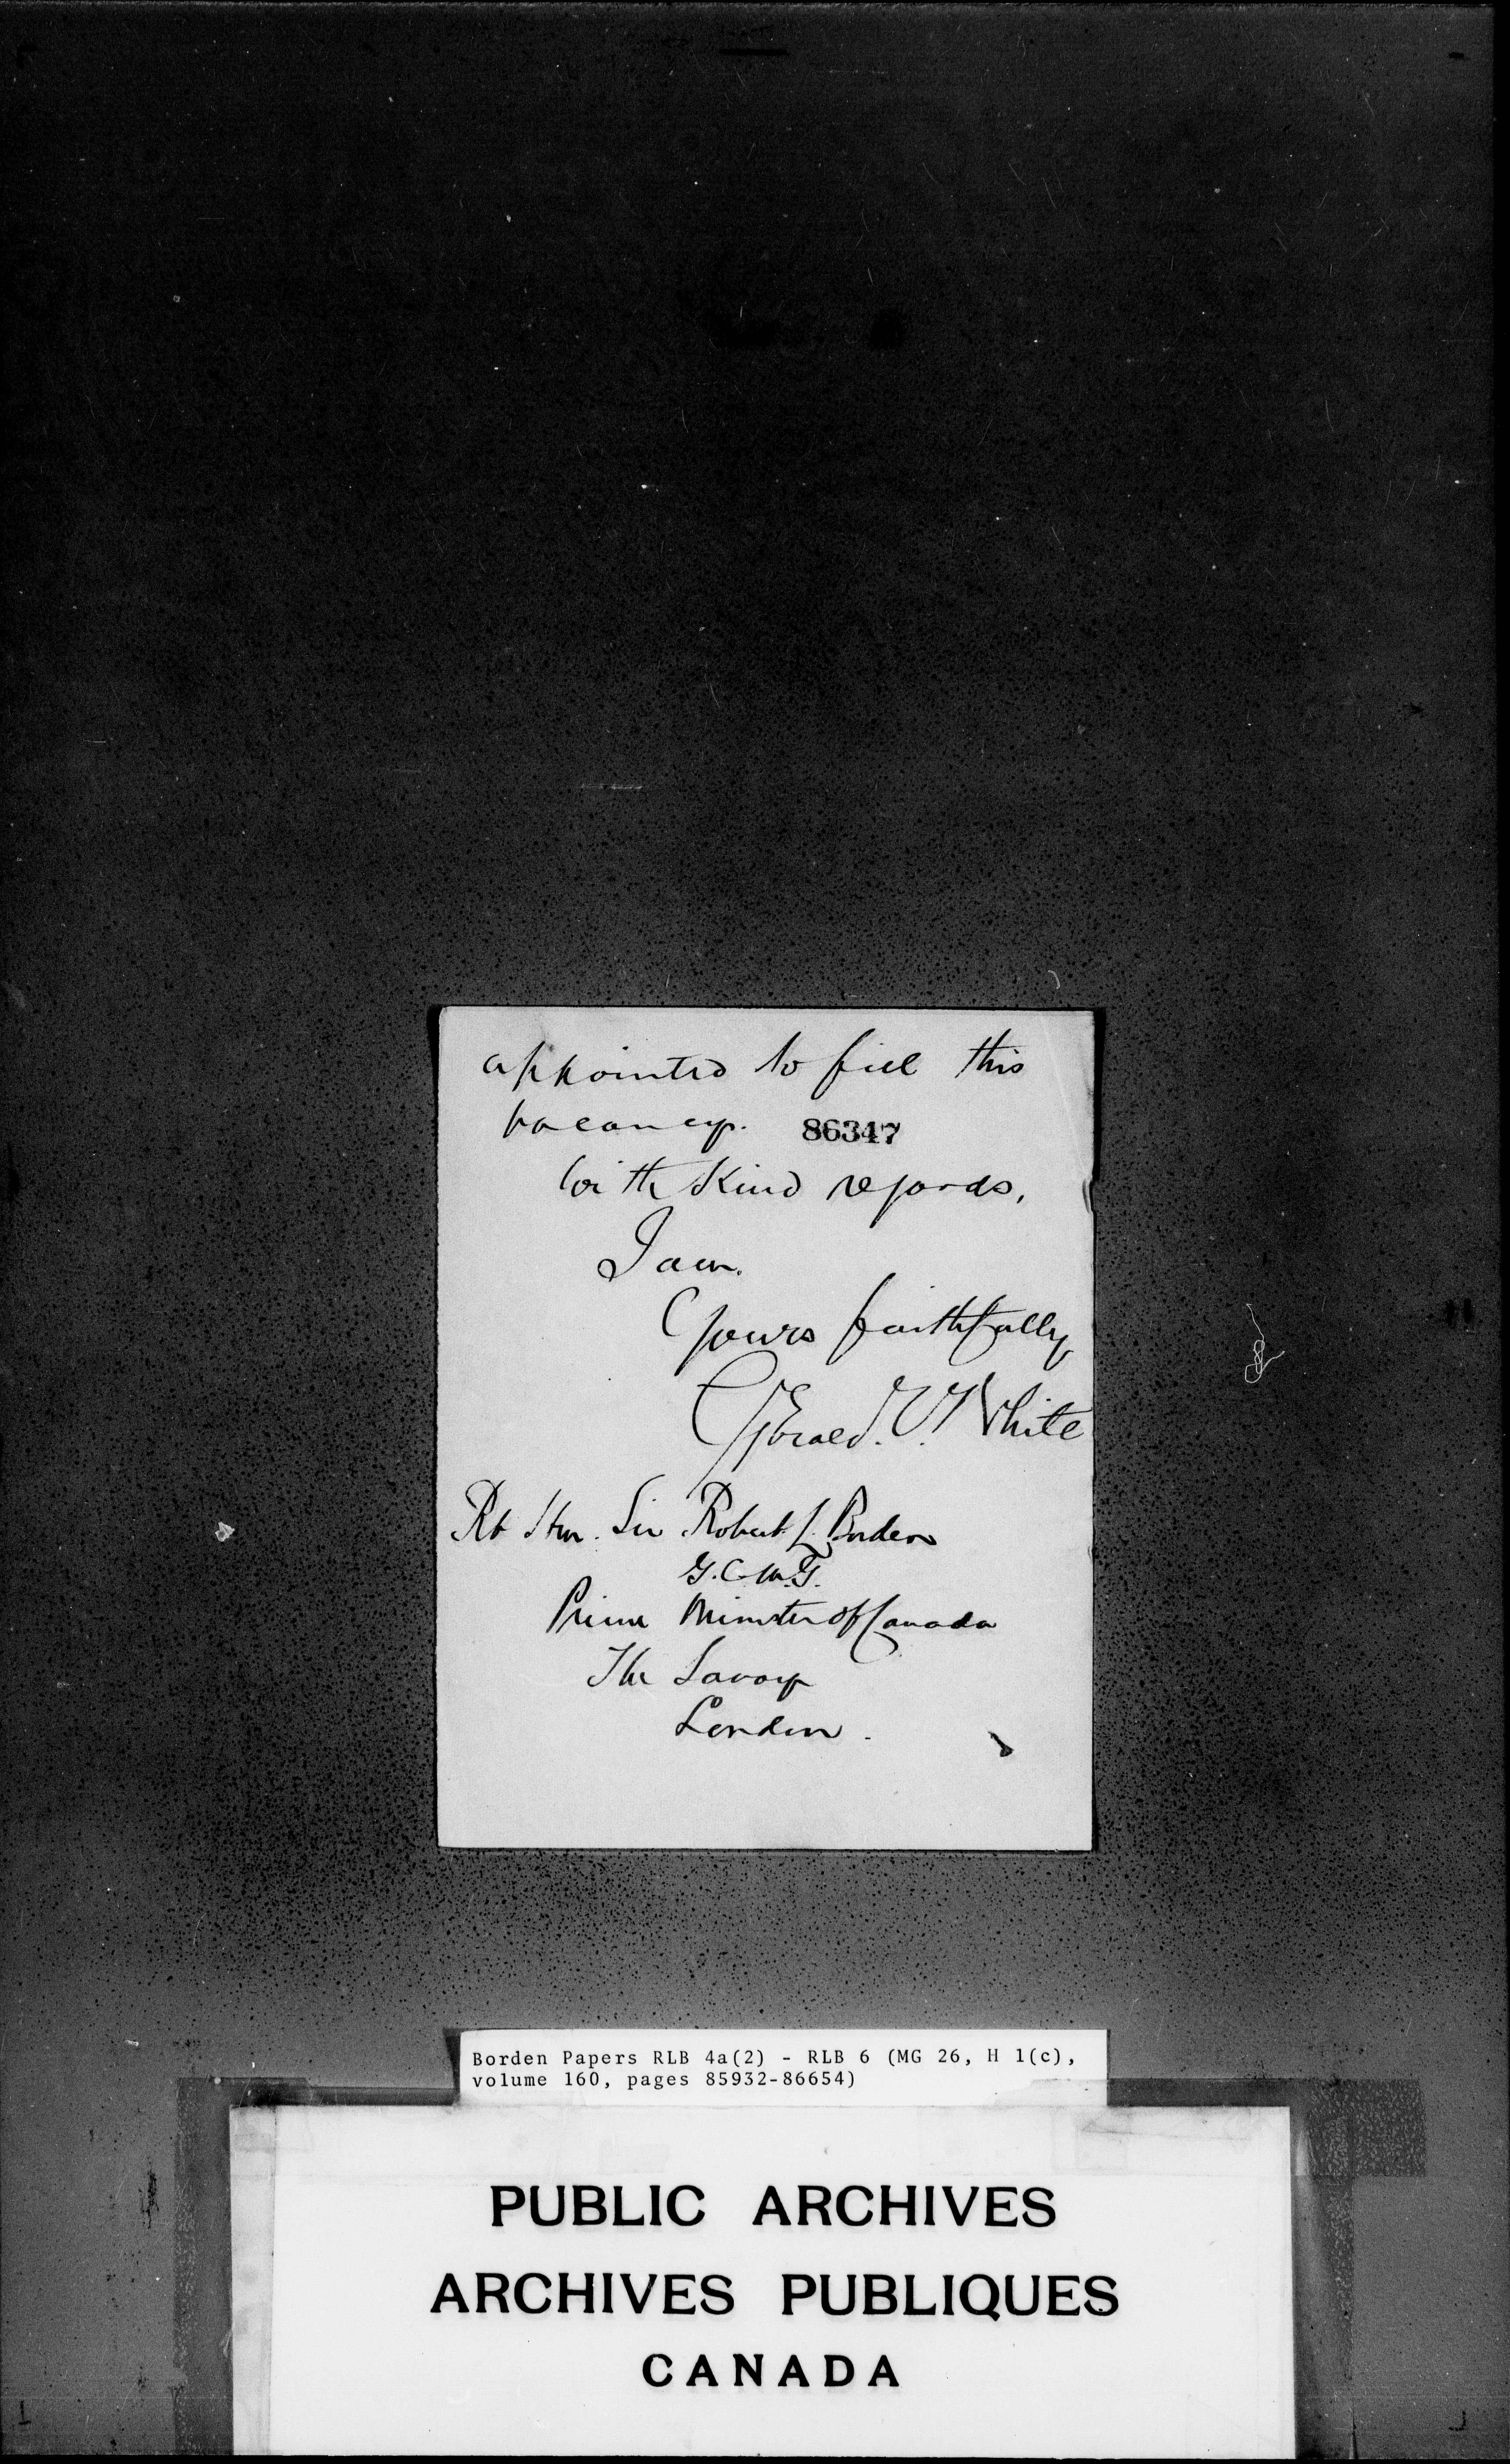 appointed to fill this
vacancy. 86347
With Kind regards,
I am.
Yours faithfully
Gerald. V. White
Rt Hon. Sir Robert L. Borden
G.C.M.G.
Prime Minister of Canada
The Savoy
London.
Borden Papers RLB 4a(2) - RLB 6 (MG 26, H 1(c),
volume 160, pages 85932-86654)
PUBLIC ARCHIVES
ARCHIVES PUBLIQUES
CANADA